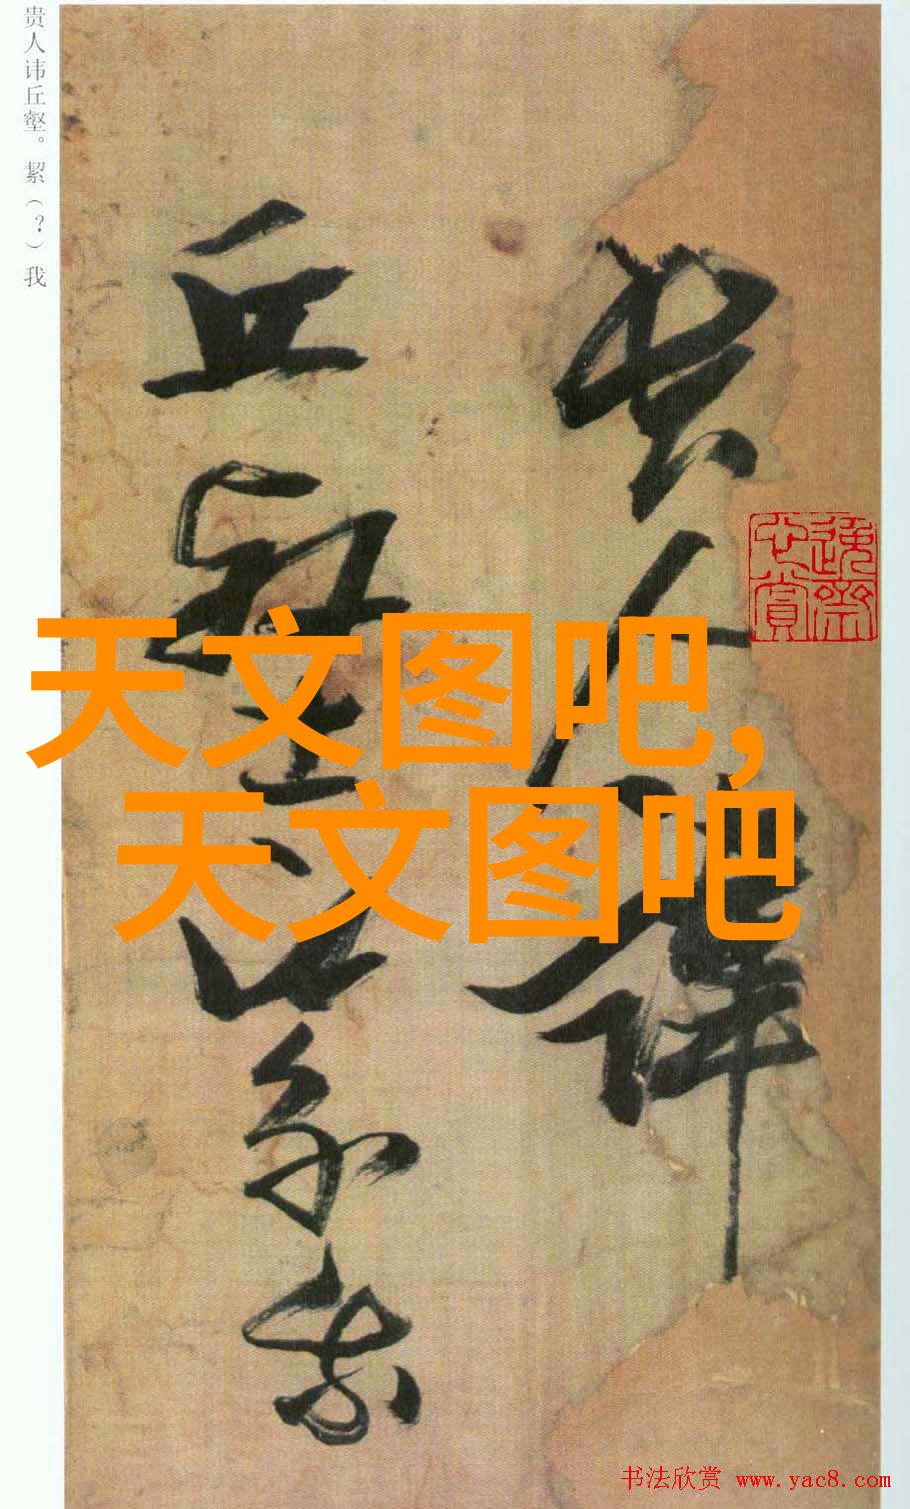 贵人讳丘壑。絜（？）我
贵人讳
丘壑絜我
天文图吧,
天文图吧
书法欣赏 www.yac8.com